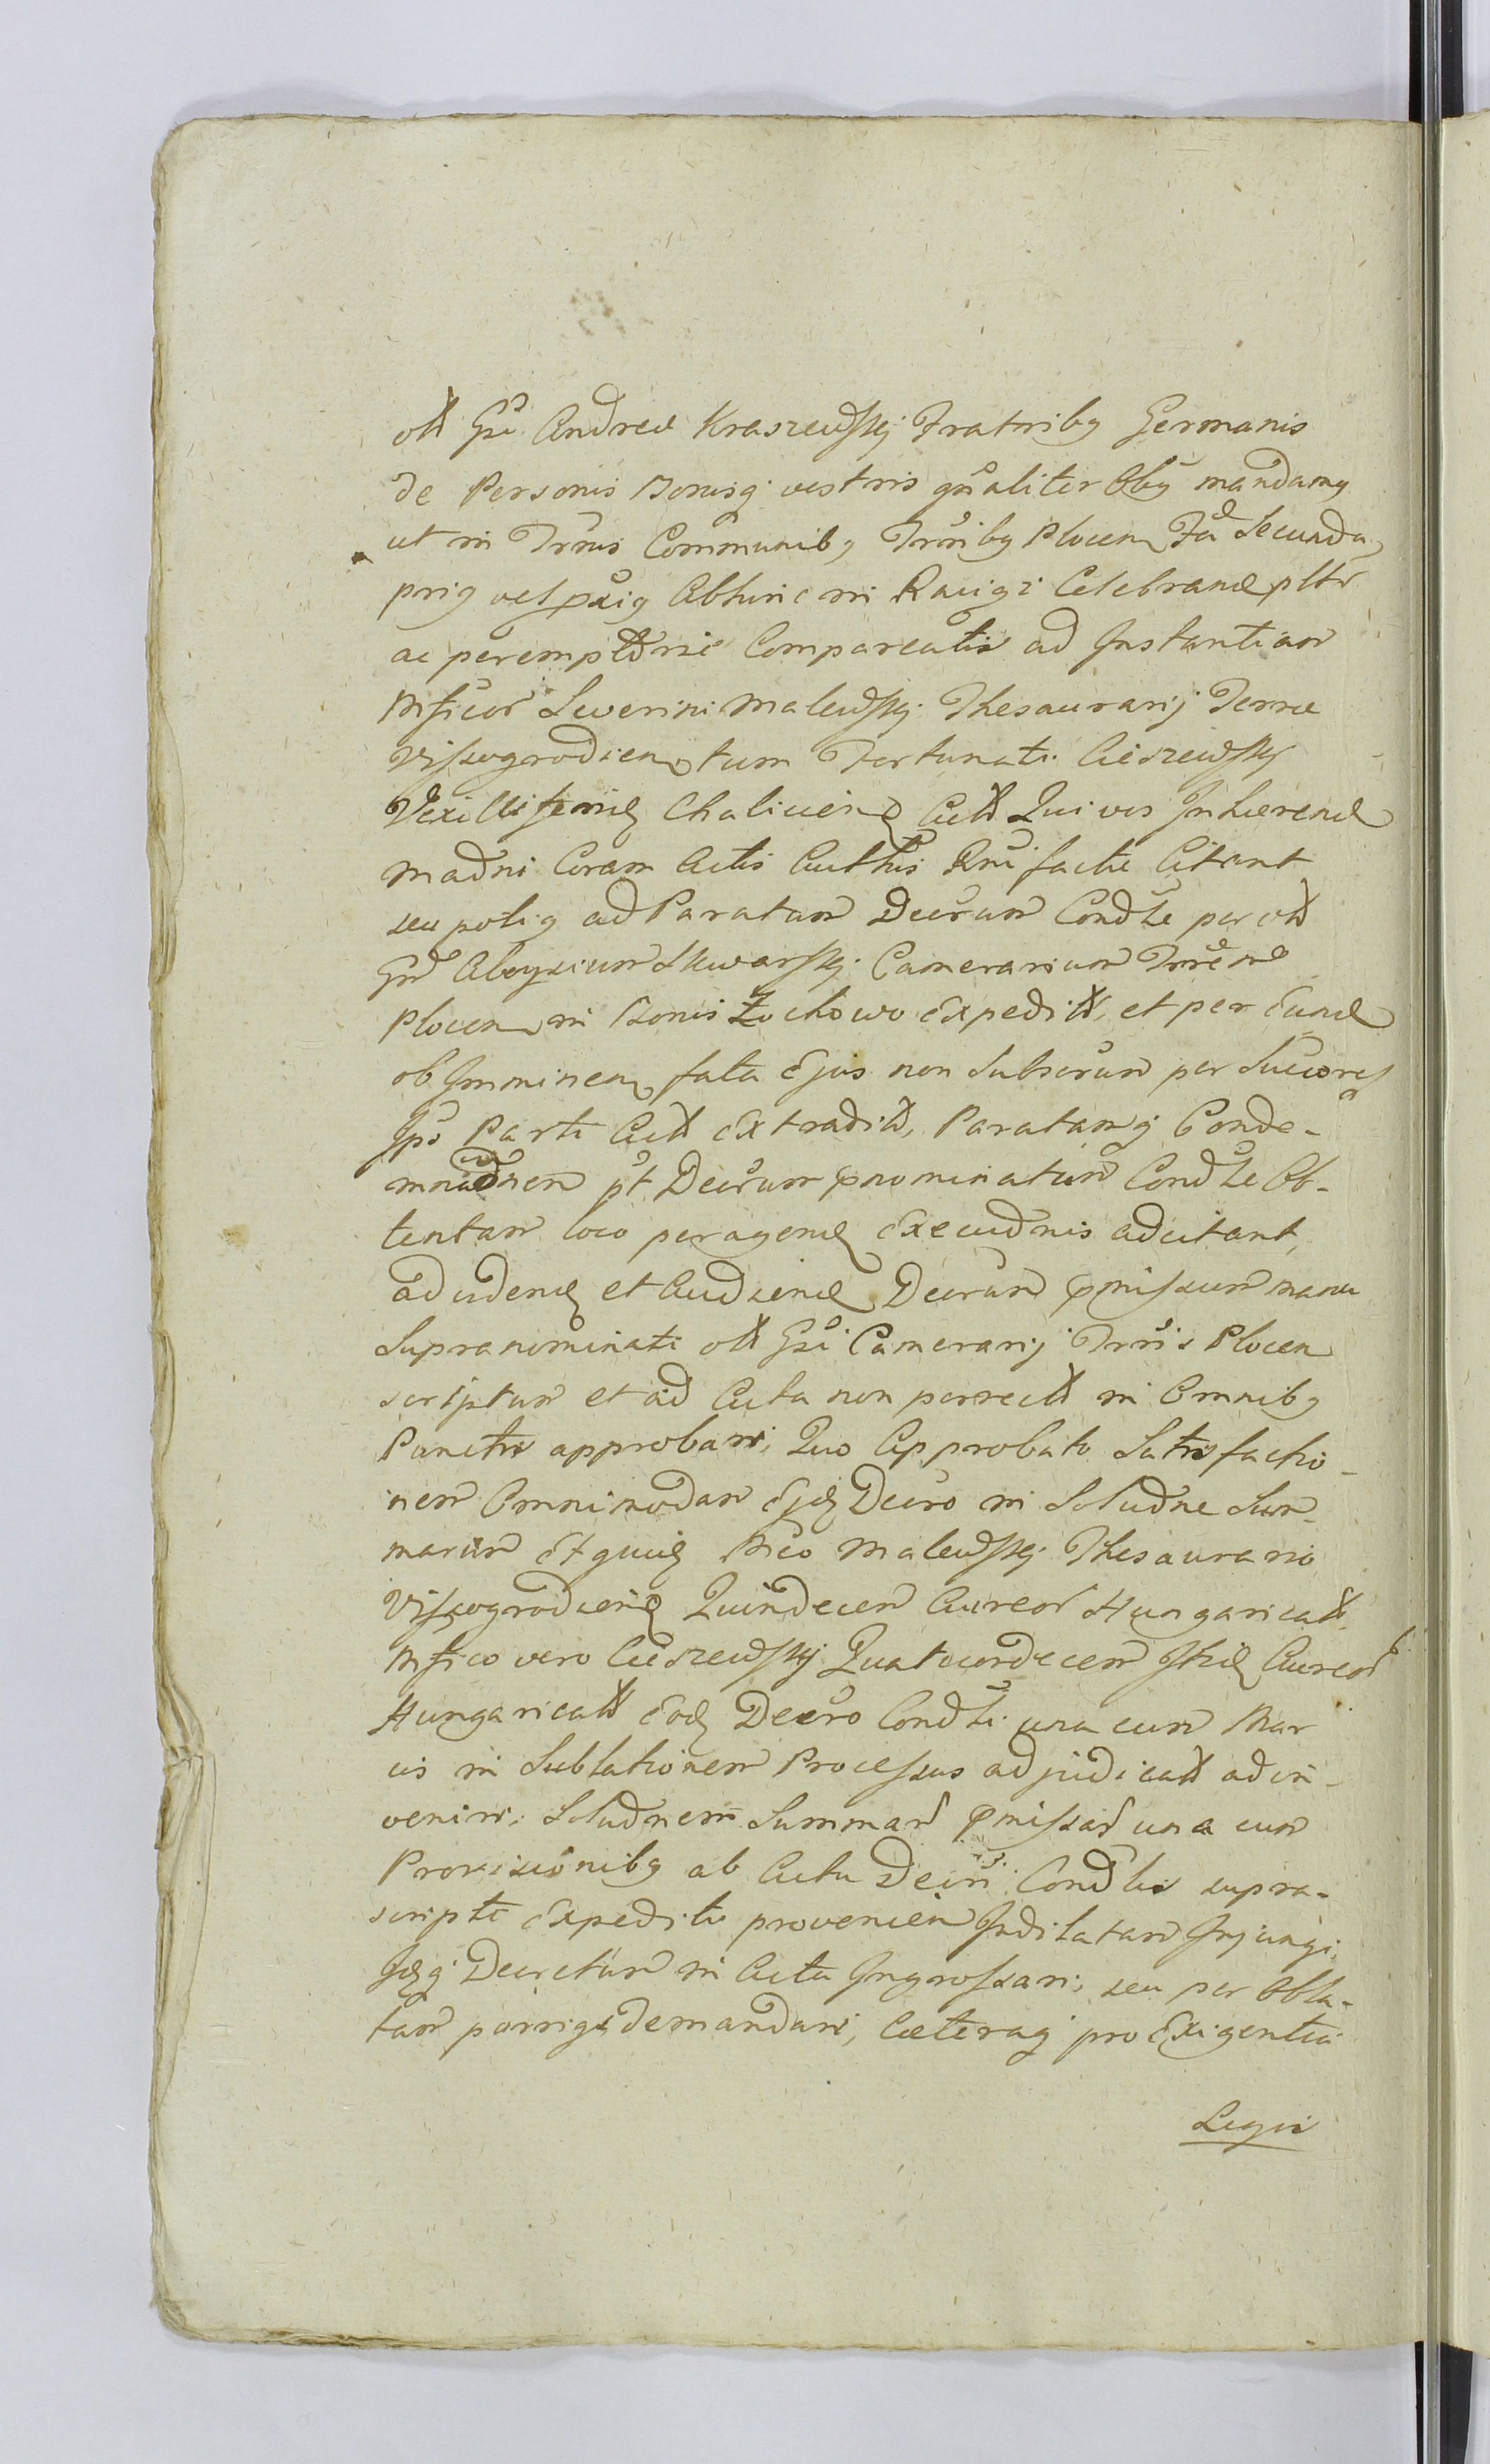 olt Gsi Andreæ Kraszewskij Fratribq Germanis
de Personis Bonisq vestris gnaliter Obq mandamq
ut in Trnis Communibq Trribq Plocen Fa Secunda
priq vel pxiq Abhinc in Raciqz Celebrand pltr
ac peremptorie Compareatis ad Instantiam
Mficor Severini Malewskij Thesaurarij Terræ
Vissogrodien tum Fortunati Cieszewskij
Vexilliferidæ Chalicien Actt Qui vos Inhærend
Madni Coram Actis Authis Qni factæ Citant
seu potiq ad Paratam Decrum Condle per olt
Gsd Aloysium Skwarskij Camerarium Trrem
Plocen in Bonis Żochowo Expeditt, et per Eund
ob Imminen fata Ejus non Subscrum per Succores
Ipsi Parti Actt Extraditt, Paratamq Conde-
mnadnem pt Decrum prænominatum Condle Ob-
tentam loco peragend Execudnis adcitant,
ad videnq et Audiend Decrum præmissum manu
Supranominati olt Gsi Camerarij Trris Plocen
scriptum et ad Acta non porrectt in Omnibq
Punctis approbari, Quo Approbato Satisfactio-
nem Omnimodam Ejdq Decro in Soludne Sum-
marum Mfico Malewskij Thesaurario
Vissogrodien Quindecem Aureor Hungaricatt
Mfico vero Cieszewskij Quatuordecem Aureor
Hungaricatt Eodq Decro Condli una cum Mar
cis in Sublationem Processus adjudicatt adin-
veniri; Soludnem Summar præmissar una cum
Provisionibq ab Actu Decri Condlis supra-
scripti Expeditæ provenien Indilatam Injungi,
Idqq Decretum in Acta Ingrossari, seu per Obla-
tam porrigi demandari, Cæteraq pro Exigentia
Legis